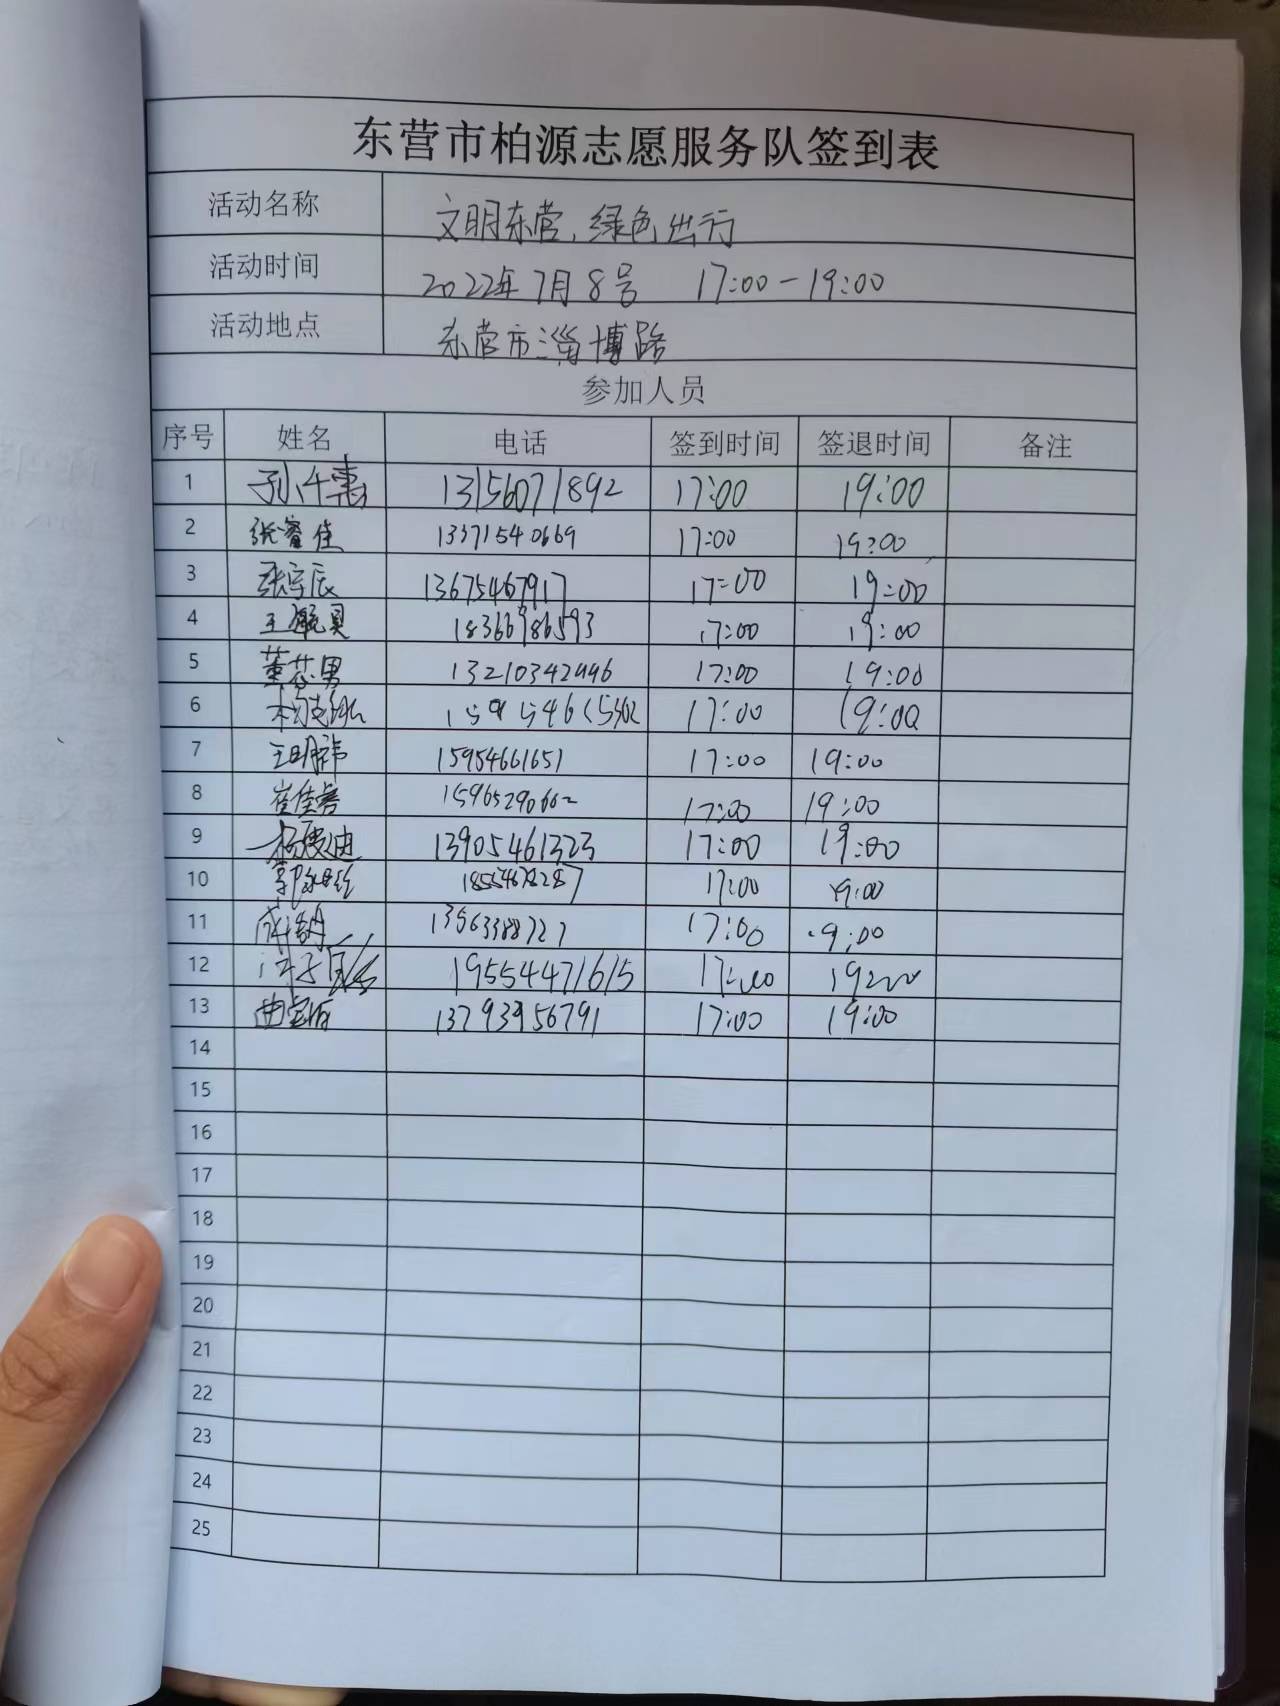 东营市柏源志愿服务队签到表
活动名称 文明东营，绿色出行
活动时间 2022年7月8号 17:00-19:00
活动地点 东营市淄博路
参加人员
序号 姓名 电话 签到时间 签退时间 备注
1 13156071892 17:00 19:00
2 张睿佳 13371540669 17:00 19:00
3 张宇辰 13675467917 17:00 19:00
4 18366986593 17:00 19:00
5 董芯男 17:00 19:00
6 17:00 19:00
7 王明祎 15954661651 17:00 19:00
8 15965290662 17:00 19:00
9 13905461323 17:00 19:00
10 17:00 19:00
11 17:00
12 19554471615
13 13793956791 17:00 19:00
14
15
16
17
18
19
20
21
22
23
24
25